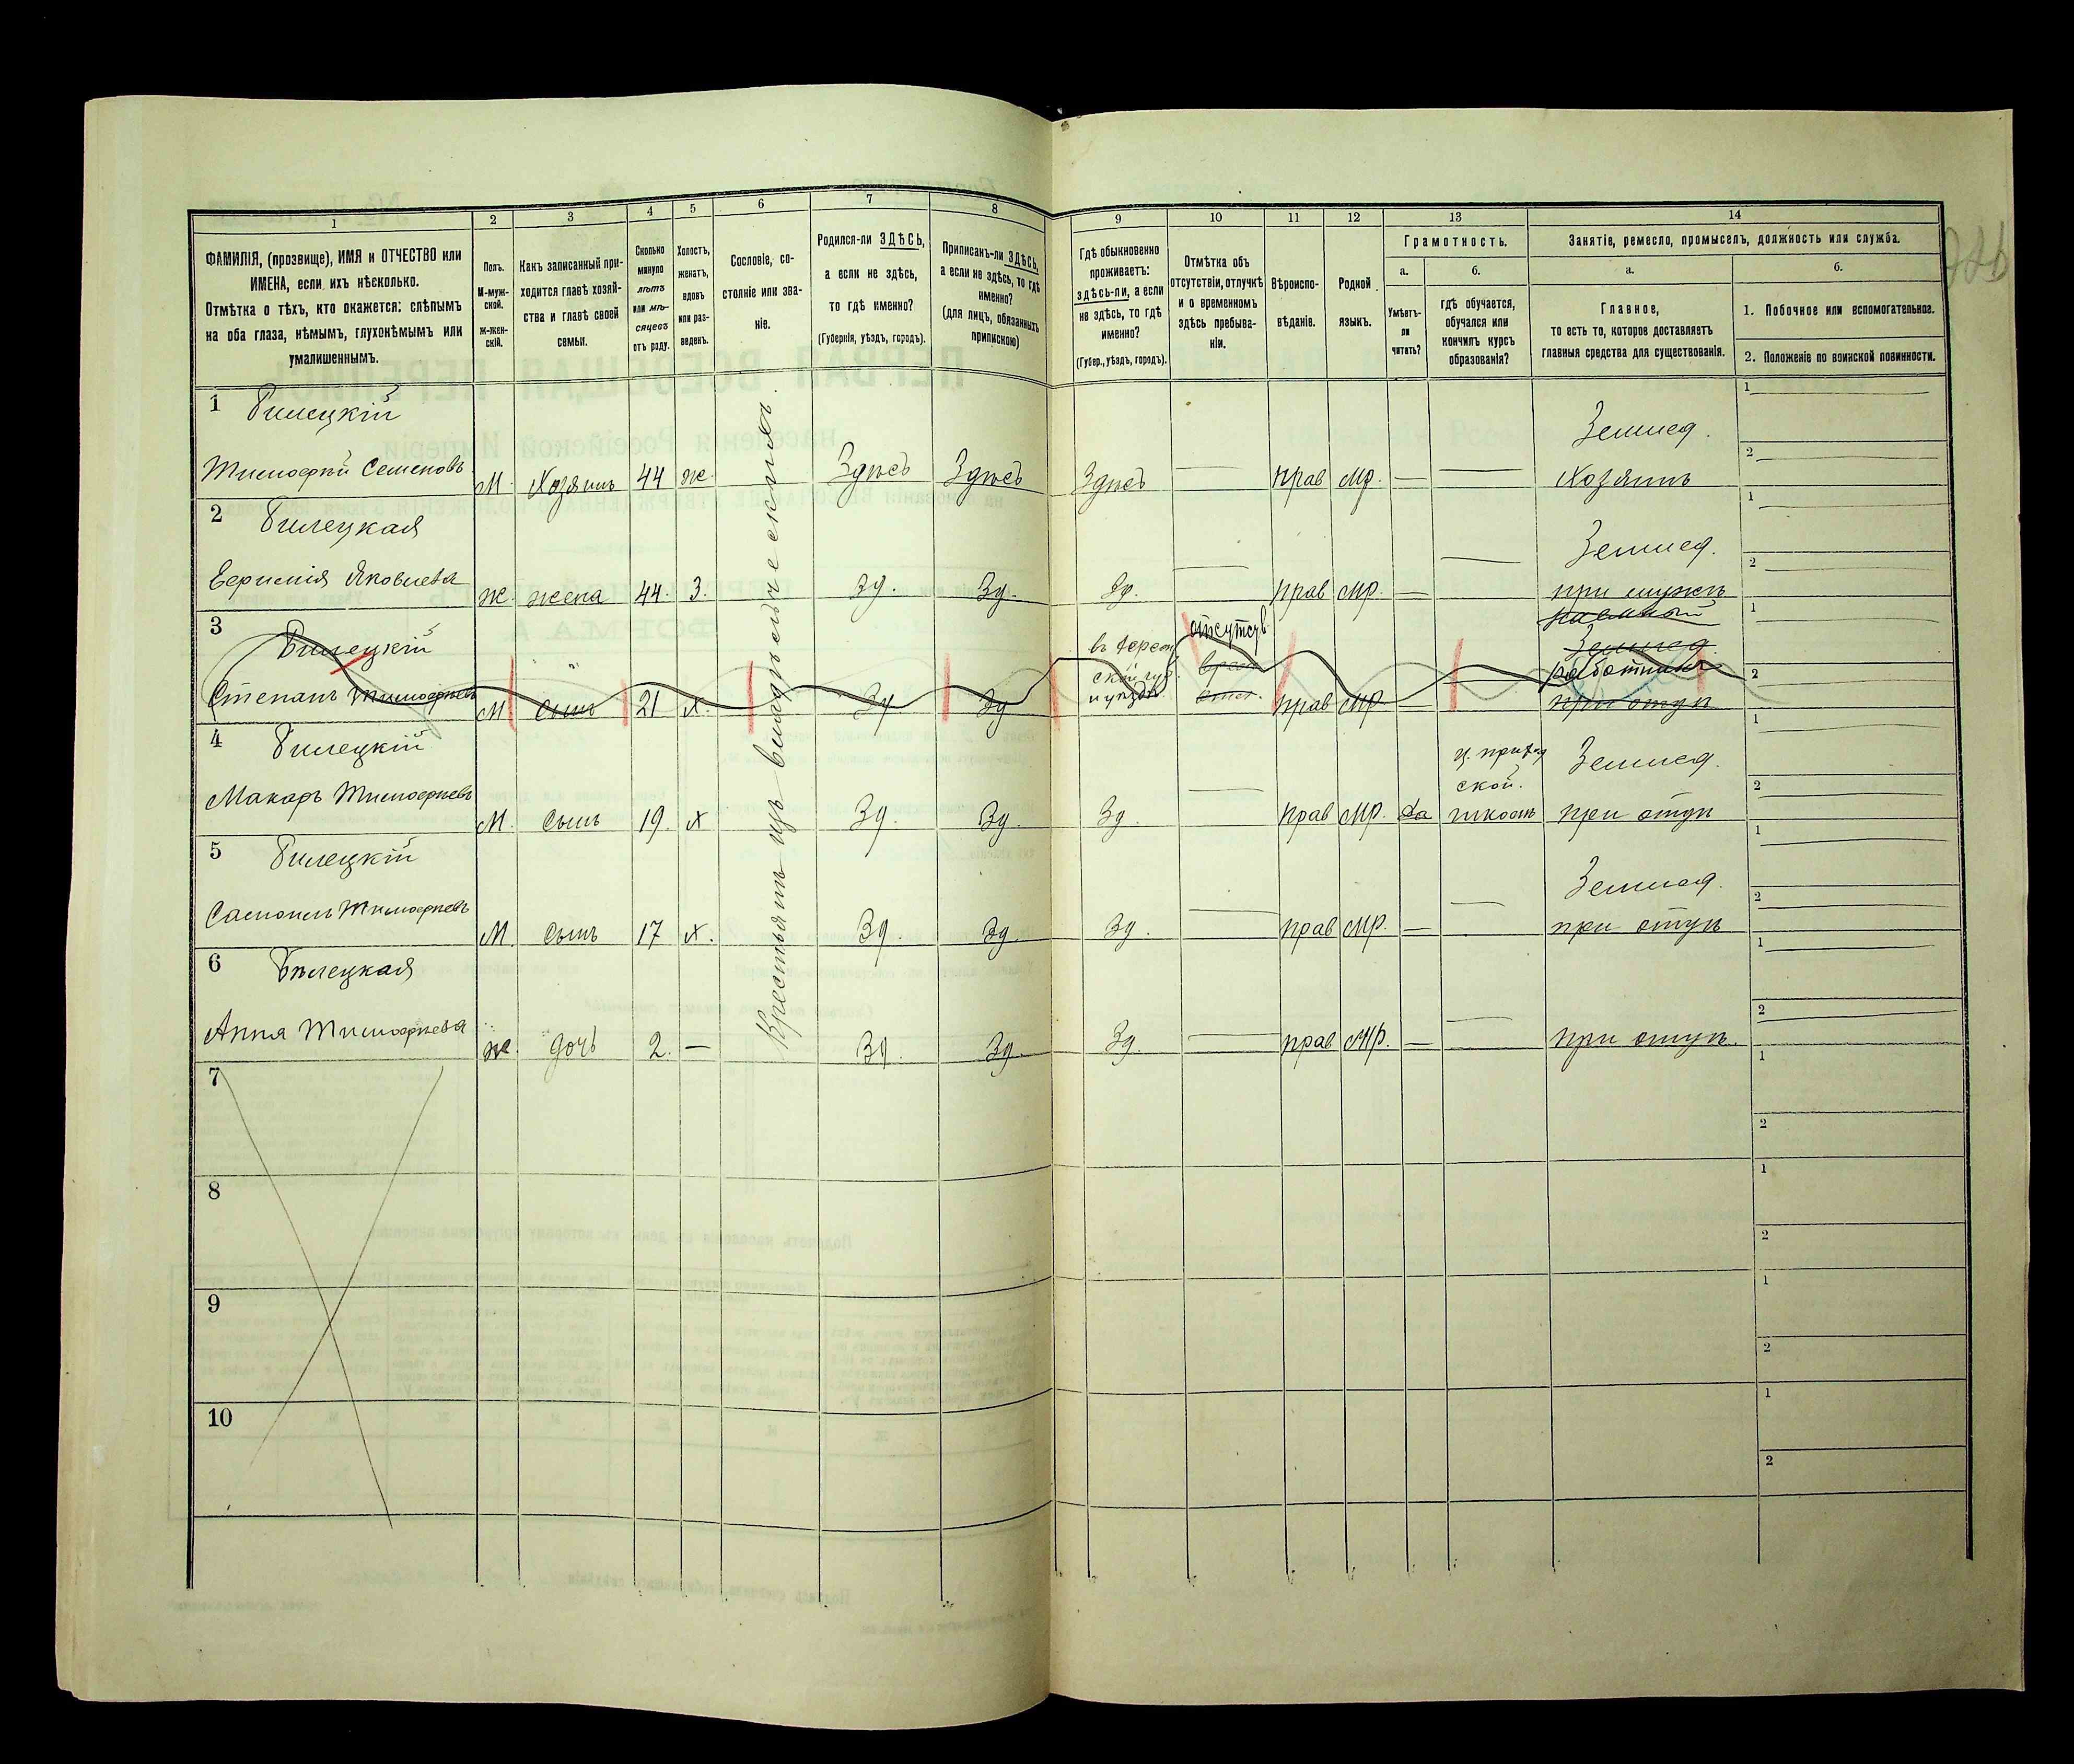 1 2 3 4 5 6 7 8 9 10 11 12 13 14
ФАМИЛІЯ, (прозвище), ИМЯ и ОТЧЕСТВО или
ИМЕНА, если ихъ нѣсколько.
Отмѣтка о тѣхъ, кто окажется: слѣпымъ
на оба глаза, нѣмымъ, глухонѣмымъ или
умалишеннымъ.
Полъ.
М-муж-
ской.
Ж-жен-
скій.
Какъ записанный при-
ходится главѣ хозяй-
ства и главѣ своей
семьи.
Сколько
минуло
лѣтъ
или мѣ-
сяцевъ
отъ роду.
Холостъ,
женатъ,
вдовъ
или раз-
веденъ.
Сословіе, со-
стояніе или зва-
ніе.
Родился-ли ЗДѢСЬ,
а если не здѣсь,
то гдѣ именно?
(Губернія, уѣздъ, городъ).
Приписанъ-ли ЗДѢСЬ,
а если не здѣсь, то гдѣ
именно?
(для лицъ, обязанныхъ
припискою)
Гдѣ обыкновенно
проживаетъ:
здѣсь-ли, а если
не здѣсь, то гдѣ
именно?
(Губер., уѣздъ, городъ).
Отмѣтка объ
отсутствіи, отлучкѣ
и о временномъ
здѣсь пребыва-
ніи.
Вѣроиспо-
вѣданіе.
Родной
языкъ.
Грамотность.
а.
Умѣетъ-
ли
читать?
б.
гдѣ обучается,
обучался или
кончилъ курсъ
образованія?
Занятіе, ремесло, промыселъ, должность или служба.
а.
Главное,
то есть то, которое доставляетъ
главныя средства для существованія.
б.
1. Побочное или вспомогательное.
2. Положеніе по воинской повинности.
Крестьянъ изъ владѣльческихъ.
1 Билецкій
Землед.
1
2
Тимофѣй Семеновъ М. Хозяинъ 44 ж. Здѣсь Здѣсь Здѣсь — Прав Мр. — — Хозяинъ
2 Билецкая
Земле д.
1
2
Яковлева Ж. жена 44. З. Зд. Зд. Зд. — Прав Мр. — — при мужѣ
3 Билецкій
отсутств
Земле д
работникъ
1
2
Степанъ Тимофѣевъ М. Сынъ 21 х. Зд Зд
въ Херсон
ской губ.
и уѣздѣ.
Прав Мр — — при отцѣ
4 Билецкій
ц. приход
ской.
Земле д.
1
2
Макаръ Тимофѣевъ М. Сынъ 19. х Зд. Зд. Зд. — Прав Мр. Да школѣ при отцѣ
5 Билецкій
Земле д.
1
2
Тимофѣевъ М. Сынъ 17 х. Зд. Зд. Зд. — Прав Мр. — — при отцѣ
6 Билецкая
1
2
Анна Тимофѣева ж. дочь 2. — Зд. Зд. Зд. — Прав Мр. — — при отцѣ.
7
1
2
8
1
2
9
1
2
10
1
2